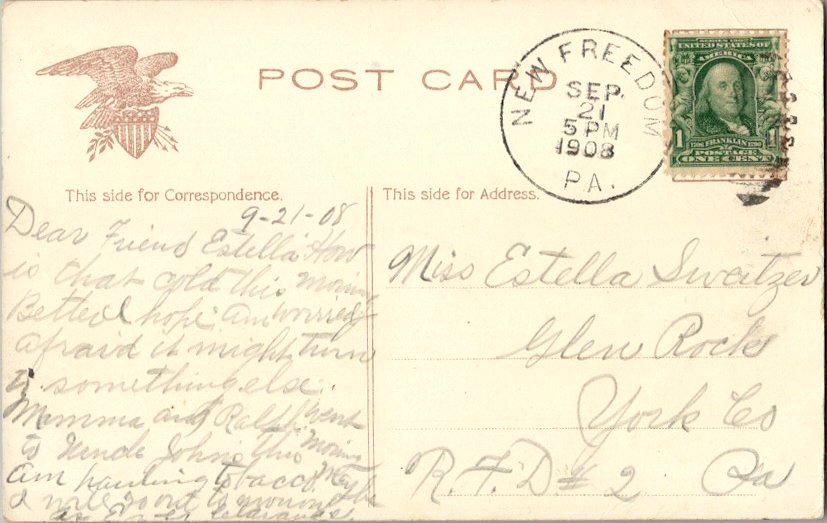 POST CARD
NEW FREEDOM
SEP.
21
5 PM
1908
PA.
SERIES 1902
UNITED STATES OF
AMERICA
1 1706 FRANKLIN 1790 1
POSTAGE
ONE CENT
This side for Correspondence.
This side for Address.
9-21-08
Dear Friend Estella How
is that cold this morning
Better I hope. am worried
afraid it might turn
to something else.
Mamma and Ralph went
to Uncle Johns this morning
am hauling tobacco. May be
I will go out to
Miss Estella Sweitzer
Glen Rock
York Co
R.F.D # 2 Pa